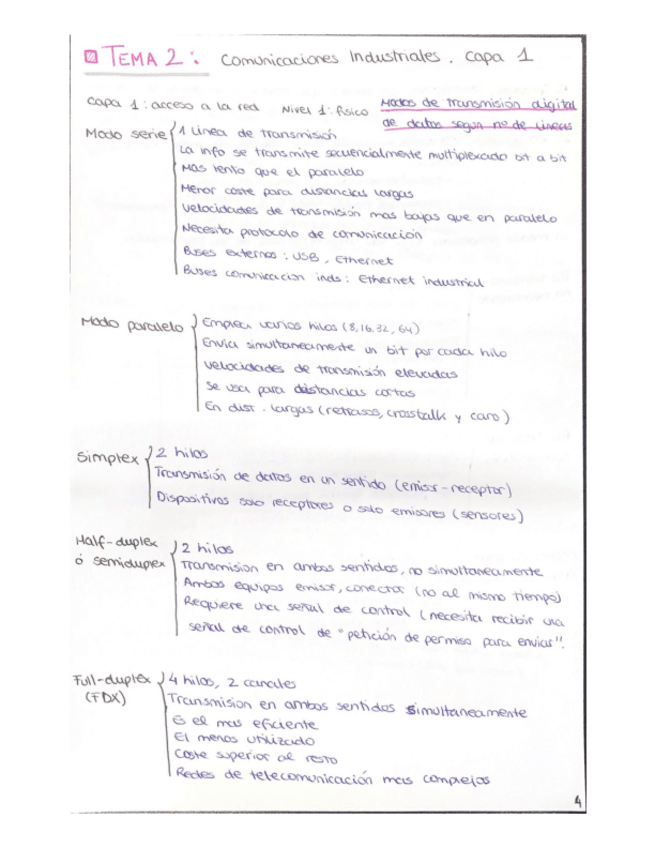 TEMA 2: Comunicaciones Industriales. Capa 1
Capa 1: acceso a la red Nivel 1: físico Modos de transmisión digital
de datos según nº de líneas
Modo serie 1 Línea de transmisión
La info se transmite secuencialmente multiplexado bit a bit
Mas lento que el paralelo
Menor coste para distancias largas
Velocidades de transmisión mas bajas que en paralelo
Necesita protocolo de comunicación
Buses externos: USB, Ethernet
Buses comunicacion inds: Ethernet industrial
Modo paralelo Emplea varios hilos (8, 16, 32, 64)
Envia simultaneamente un bit por cada hilo
Velocidades de transmisión elevadas
Se usa para distancias cortas
En dist. largas (retrasos, crosstalk y caro)
Simplex 2 hilos
Transmisión de datos en un sentido (emisor-receptor)
Dispositivos solo receptores o solo emisores (sensores)
Half-duplex 2 hilos
ó semiduplex Transmision en ambos sentidos, no simultaneamente
Ambos equipos emisor, conector (no al mismo tiempo)
Requiere una señal de control (necesita recibir una
señal de control de "petición de permiso para enviar".
Full-duplex 4 hilos, 2 canales
(FDX) Transmision en ambos sentidos simultaneamente
Es el mas eficiente
El menos utilizado
Coste superior al resto
Redes de telecomunicación mas complejas
4